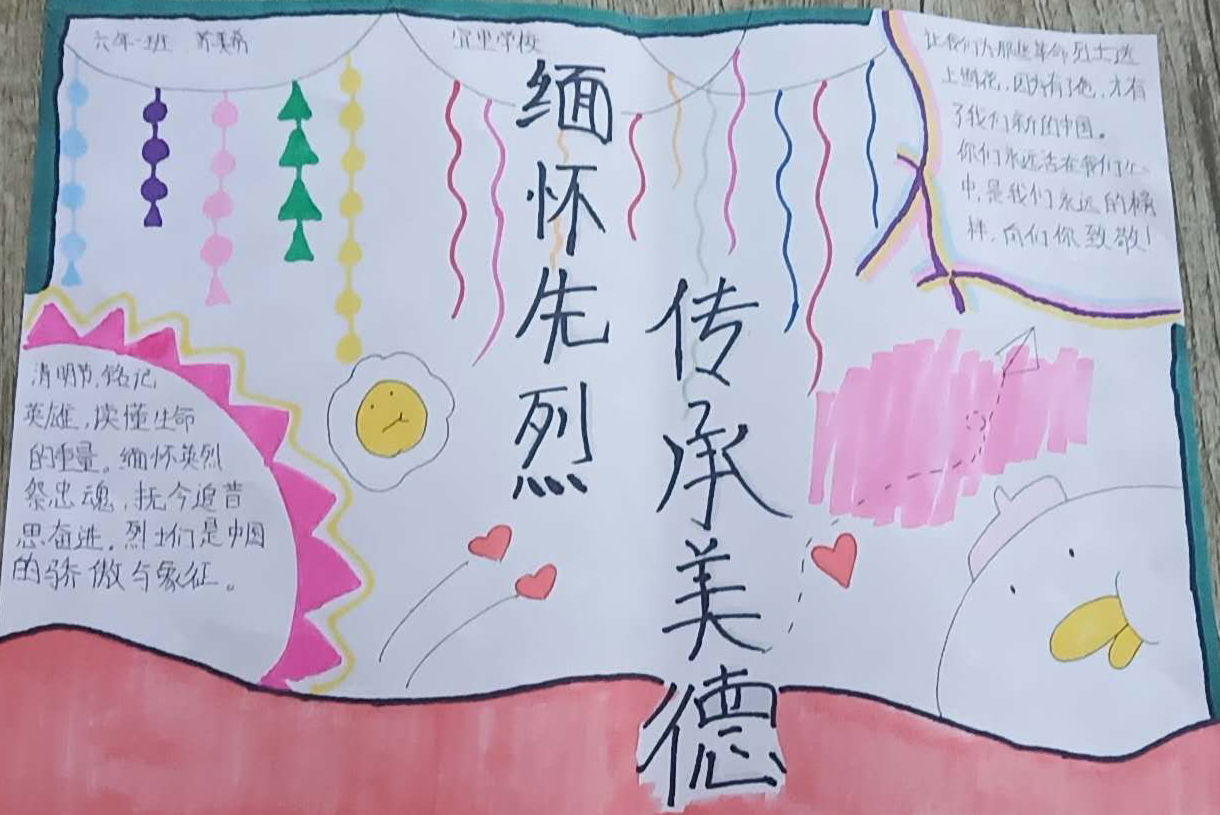 六年一班 苏美希
宜里学校
缅怀先烈
传承美德
让我们为那些革命烈士送
上鲜花，因为有了他，才有
了我们新的中国。
你们永远活在我们心
中，是我们永远的榜
样，向们你致敬！
清明节，铭记
英雄，读懂生命
的重量。缅怀英烈
祭忠魂，抚今追昔
思奋进。烈士们是中国
的骄傲与象征。